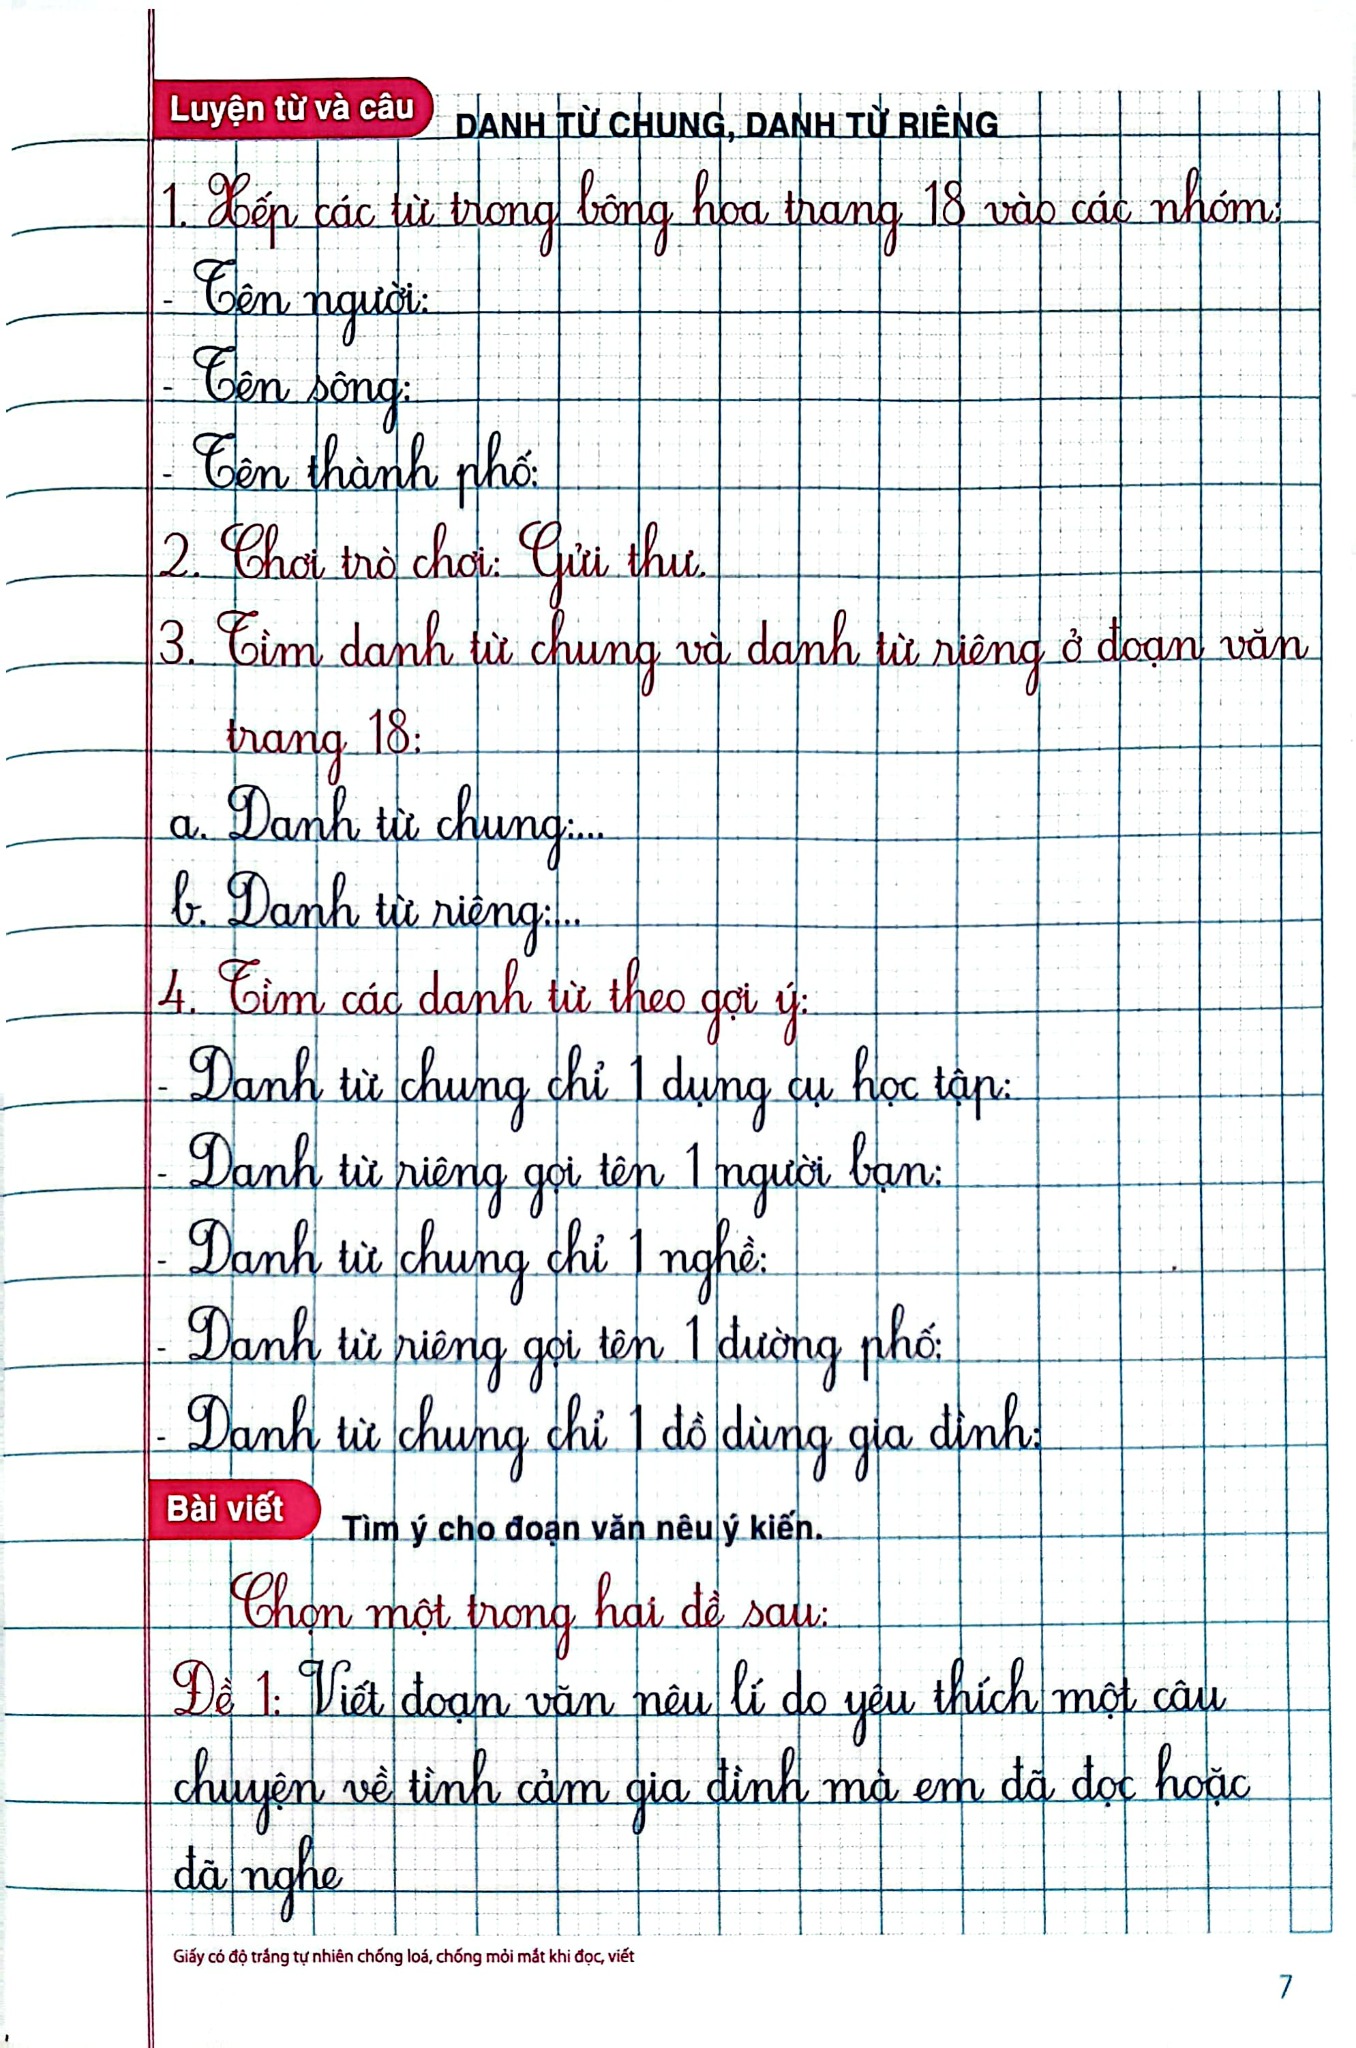 Luyện từ và câu
DANH TỪ CHUNG, DANH TỪ RIÊNG
1. Xếp các từ trong bông hoa trang 18 vào các nhóm:
- Tên người:
- Tên sông:
- Tên thành phố:
2. Chơi trò chơi: Gửi thư.
3. Tìm danh từ chung và danh từ riêng ở đoạn văn
trang 18:
a. Danh từ chung:...
b. Danh từ riêng:...
4. Tìm các danh từ theo gợi ý:
- Danh từ chung chỉ 1 dụng cụ học tập:
- Danh từ riêng gọi tên 1 người bạn:
- Danh từ chung chỉ 1 nghề:
- Danh từ riêng gọi tên 1 đường phố:
- Danh từ chung chỉ 1 đồ dùng gia đình:
Bài viết
Tìm ý cho đoạn văn nêu ý kiến.
Chọn một trong hai đề sau:
Đề 1: Viết đoạn văn nêu lí do yêu thích một câu
chuyện về tình cảm gia đình mà em đã đọc hoặc
đã nghe
Giấy có độ trắng tự nhiên chống loá, chống mỏi mắt khi đọc, viết
7